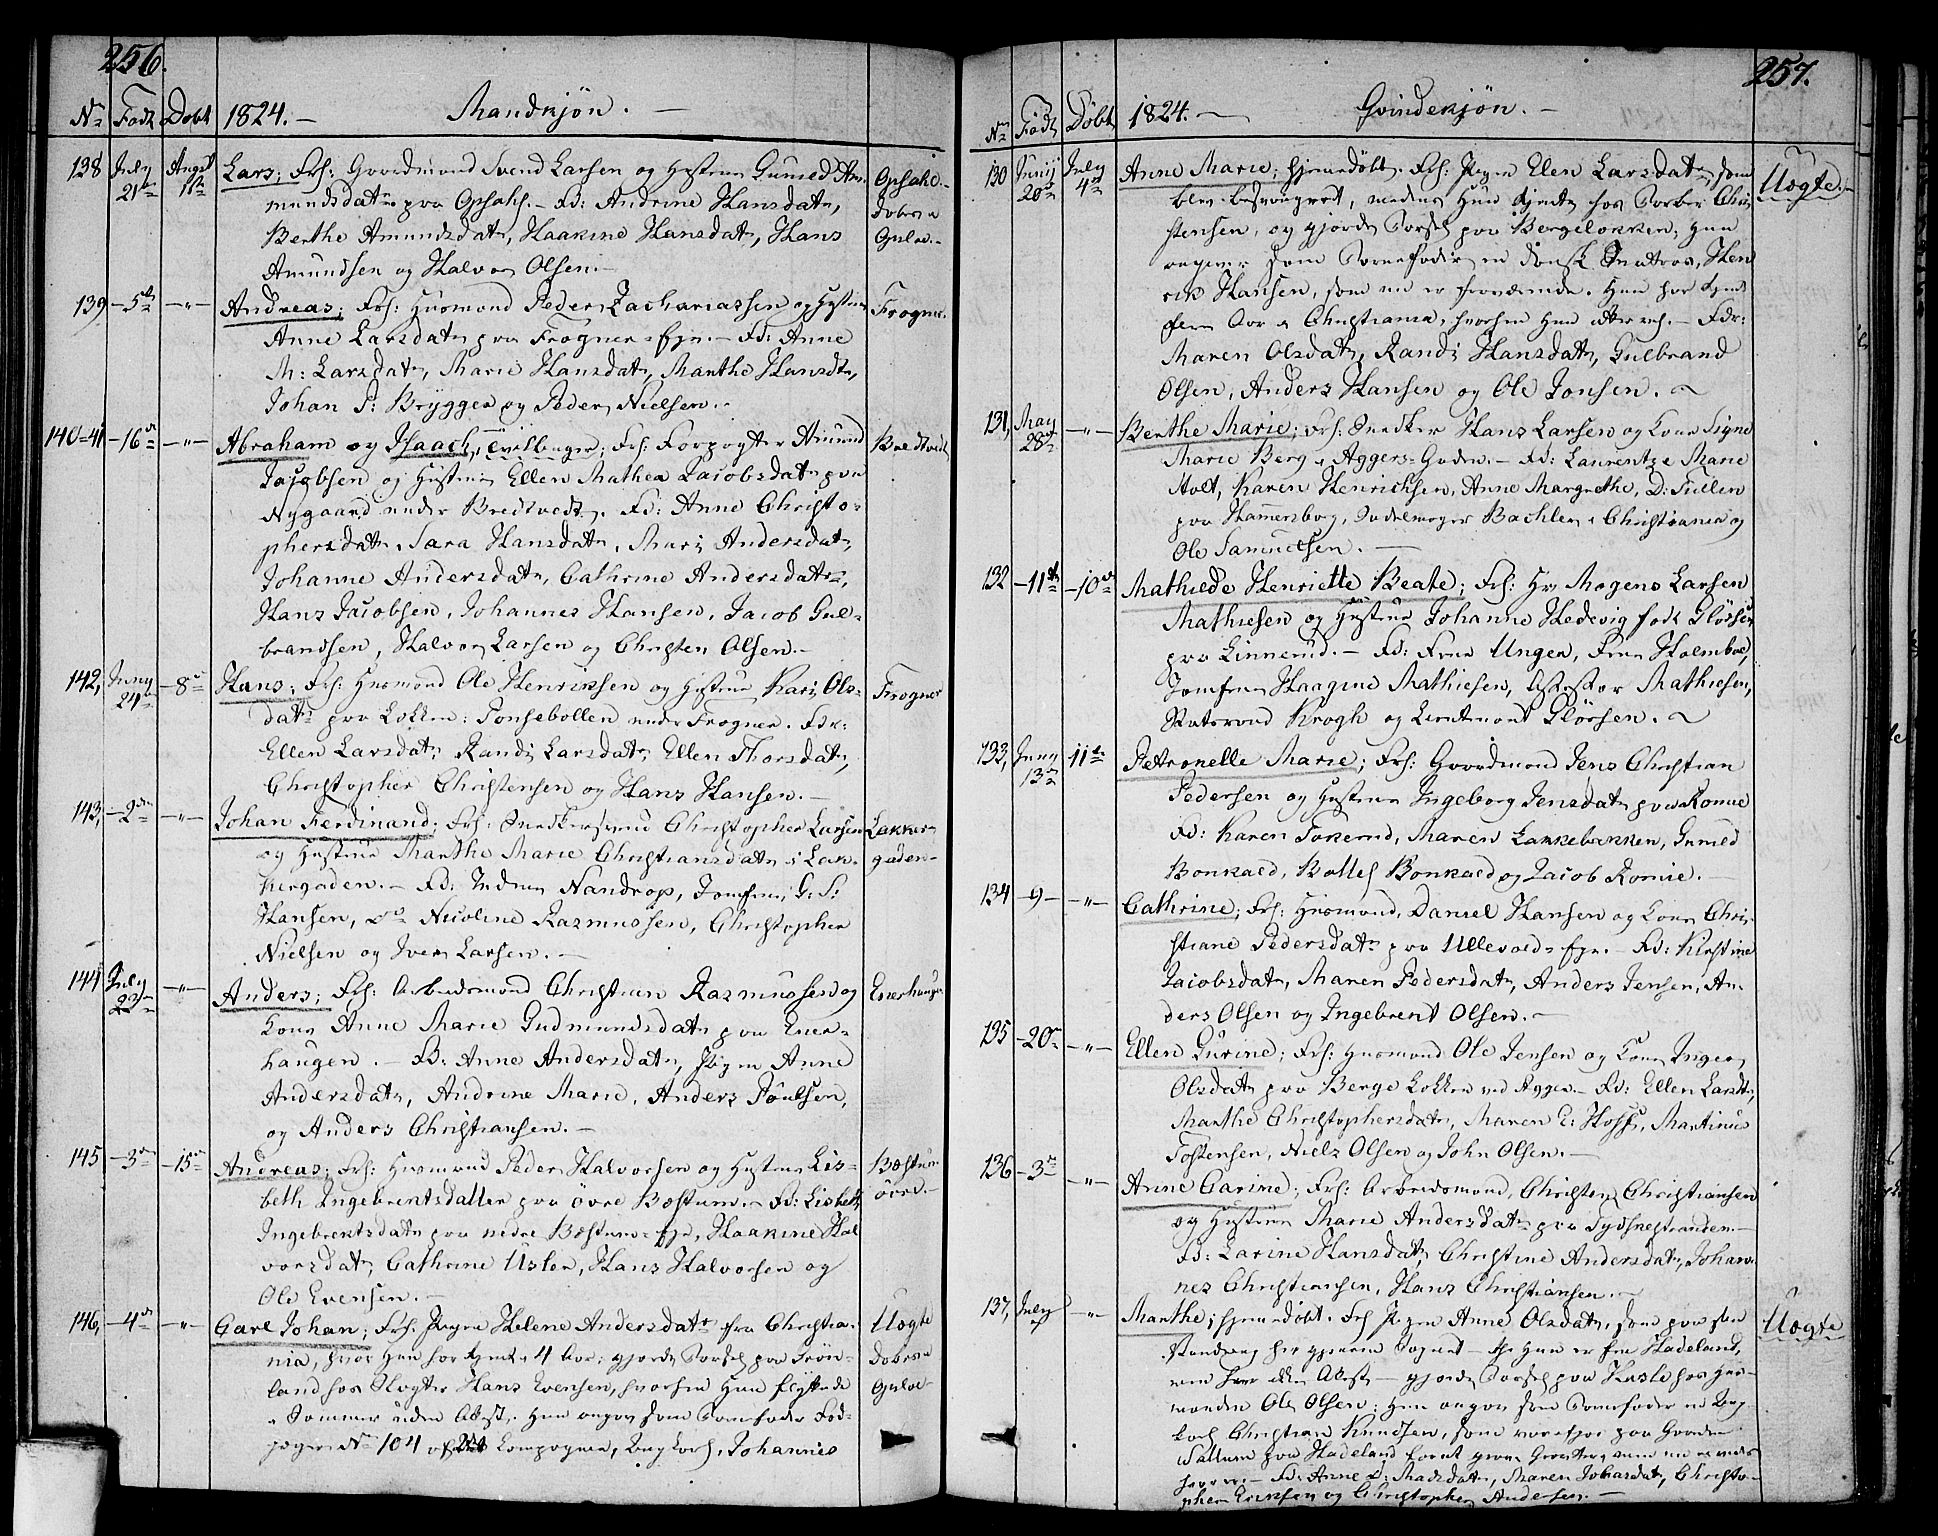 256.
No Født Døbt 1824. – Mandkjøn. –
138 July 21de Augst 1ste Lars; Frs: Gaardmand Svend Larsen og Hustrue Guneld Amundsdatr Opsahl
mundsdatr paa Opsahl. – Fd: Andrine Hansdatr,
Berthe Amundsdatr, Haakine Hansdatr, Hans
Amundsen og Halvor Olsen. –
139 – 5te – " – Andreas; Frs: Huusmand Peder Zachariassen og Hustrue Frogner
Anne Larsdatr paa Frogner-eje. – Fd: Anne
M: Larsdatr, Marie Hansdatr, Marthe Hansdtr,
Johan P: Brygger og Peder Nielsen. –
140=41 – 16de – " – Abraham og Isaach, Tvillinger; Frs: Forpagter Amund Bredtvedt
Jacobsen og Hustrue Ellen Mathea Jacobsdatr paa
Nygaard under Bredtvedt. Fd: Anne Christo-
phersdatr, Sara Hansdatr, Mari Andersdatr,
Johanne Andersdatr, Cathrine Andersdatr,
Hans Jacobsen, Johannes Hansen, Jacob Gul-
brandsen, Halvor Larsen og Christen Olsen. –
142, Juny 24de – 8de Hans; Frs: Huusmand Ole Henriksen og Hustrue Kari Ols- Frogner
datr paa Løkken: Tonsebollen under Frogner. Fdr:
Ellen Larsdatr, Randi Larsdatr, Ellen Thorsdatr,
Christopher Christensen og Hans Hansen. –
143, – 2den – " – Johan Ferdinand; Frs: Snedkersvend Christopher Larsen Lakker-
og Hustrue Marthe Marie Christiansdatr i Lak- gaden –
kergaden. – Fd: Nandrop, Jomfrue G. S:
Hansen, do Nicoline Rasmussen, Christopher
Nielsen og Iver Larsen. –
144 July 22de – " – Anders; Frs: Arbeidsmand Christian Rasmussen og Enerhaugen
Kone Anne Marie Gudmundsdatr paa Ener-
haugen. – Fd: Anne Andersdatr, Pigen Anne
Andersdatr, Andrine Marie, Anders Poulsen,
og Anders Christiansen. –
145 – 3de – 15de Andreas; Frs: Huusmand Peder Halvorsen og Hustrue Lis- Bæstum
beth Ingebrentsdatter paa øvre Bæstum – Fd: Lisbeth øvre. –
Ingebrentsdatr paa nedre Bæstum-eje, Haakine Hal
vorsdatr, Cathrine Usler, Hans Halvorsen og
Ole Evensen. –
146, – 4de – " – Carl Johan; Frs: Pigen Helene Andersdatr fra Christia- Uægte
nia, hvor hun har tjent i 4 Aar; gjorde Barsel paa Grøn-
land hos Slagter Hans Evensen, hvorhen hun flyttede
i Sommer uden Attest. Hun angav som Barnefader Fod-
jæger No 104 af Compagnie, Johannes
257.
No Født Døbt 1824. – Qvindekjøn. –
130 Juny 20de July 4de Anne Marie; hjemmedøbt. Frs: Pigen Elen Larsdatr, som Uægte. –
blev besvangret, medens hun tjente hos Torber Chri
stensen, og gjorde Barsel paa Bergeløkken; Hun
angiver som Barnefader en dansk Matros, Hen
rik Hansen, som nu er fraværende. Hun har tjent
flere Aar i Christiania, hvorfra hun – Fdr:
Maren Olsdatr, Randi Hansdatr, Gulbrand
Olsen, Anders Hansen og Ole Jonsen. ~
131, May 28de – " – Berthe Marie; Frs: Snedker Hans Larsen og Kone Signe
Marie Berg i Aggers-Gaden. – Fd: Laurentze Marie
Holt, Karen Henrichsen, Anne Margrethe, D: Tullin
paa Hammersborg, Bachler i Christiania og
Ole Samuelsen. –
132 – 11te – 10de Mathilde Henriette Beate; Frs: Hr Mogens Larsen
Mathiesen og Hustrue Johanne Hedevig født Glørsen
paa Linnerud. – Fd: Frue Unger, Frue Holmboe,
Jomfrue Haagine Mathiesen, Mathiesen,
Statsraad Krogh og Lieutenant Glørsen. ~
133, Juny 13de 11te Petronelle Marie; Frs: Gaardmand Jens Christian
Pedersen og Hustrue Ingeborg Jensdatr paa Romie
Fd: Karen Tokerud, Maren Lakkebakken, Guneld
Bonkald, Bottel Bonkald og Jacob Romie. –
134 – 9 – – " – Cathrine; Frs: Huusmand Daniel Hansen og Kone Chri-
stiane Pedersdatr paa Ullevolds-eje. – Fd: Kirstine
Jacobsdatr, Maren Pedersdatr, Anders Jensen, An-
ders Olsen og Ingebrent Olsen. –
135 – 20de – " – Ellen Gurine; Frs: Huusmand Ole Jensen og Kone Inger
Olsdatr paa Berge Løkken ved Agger – Fd: Ellen Larsdtr,
Marthe Christophersdatr, Maren E: Hoff, Martinus
Tostensen, Niels Olsen og John Olsen. –
136 – 3de – " – Anne Carine; Frs: Arbeidsmand Christen Christiansen
og Hustrue Marie Andersdatr paa Tydskestranden –
Fd: Larine Hansdatr, Christine Andersdatr, Johan-
nes Christiansen, Hans Christiansen. ~
137, July – " – Marthe; hjemmedøbt. Frs: Pigen Anne Olsdatr, som paa sin Uægte
Vandring her igjennem Sognet – thi hun er fra Hadeland,
men har ikke Attest – gjorde Barsel paa Hasle hos Huus-
manden Ole Olsen; Hun angav som Barnefader en Ung-
karl Christian Knudsen, som paa Gaarden
paa Hadeland
– Fd: Anne L: Madsdatr, Maren Johansdatr, Christo-
pher Eriksen og Christopher Andersen. –